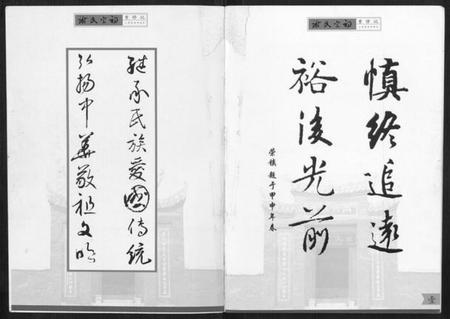 慎终追远
裕後光前
荣禎 题于甲申年春
继承民族爱国传统
弘扬中华敬祖文明
宗祠
宗祠
壹